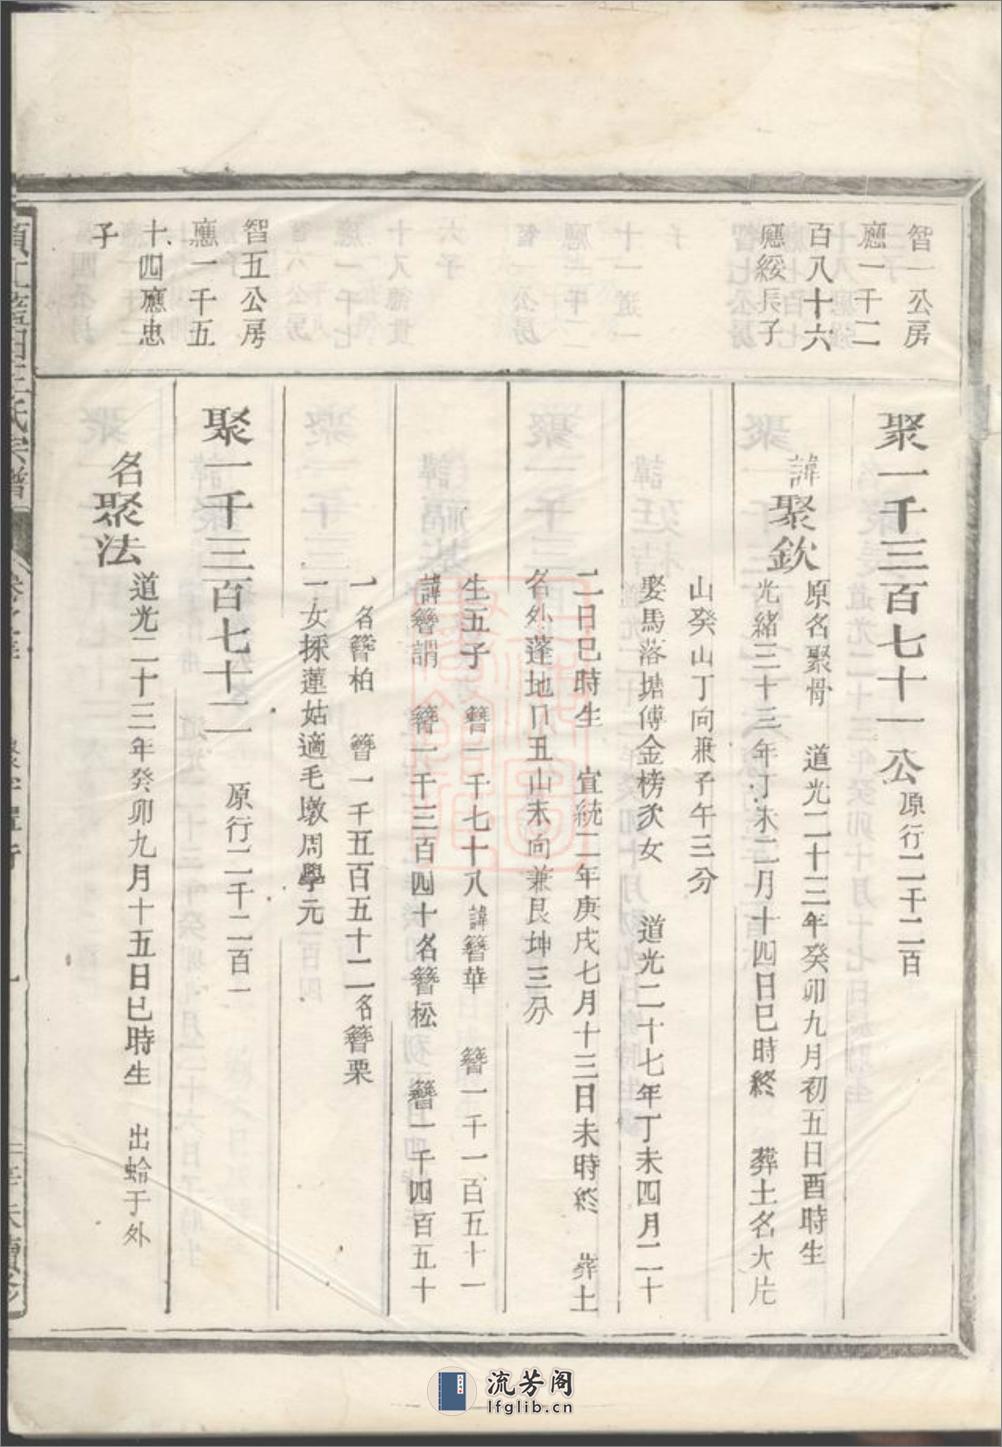 智一公房
應一千二
百八十六
應綏長子
聚一千三百七十一公原行二千二百
諱聚欽
原名聚骨 道光二十三年癸卯九月初五日酉時生
光緒三十三年丁未二月十四日巳時終 葬土名大片
山癸山丁向兼子午三分
娶馬落塘傅金榜次女 道光二十七年丁未四月二十
二日巳時生 宣統二年庚戌七月十三日未時終 葬土
名外蓬地丑山未向兼艮坤三分
生五子 簪一千七十八諱簪華 簪一千一百五十一
諱簪謂 簪一千三百四十名簪松 簪一千四百五十
一名簪柏 簪一千五百五十二名簪栗
一女採蓮姑適毛墩周學元
智五公房
應一千五
十四應忠
子
聚一千三百七十二 原行二千二百一
名聚法
道光二十三年癸卯九月十五日巳時生 出蛤于外
王氏宗譜
流芳阁
lfglib.cn